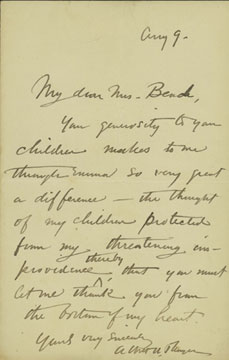 Aug 9.
My dear Mrs - Beach,
Your generosity to your
children makes to me
through Emma so very great
a difference — the thought
of my children protected
from my threatening im-
providence thereby that you must
let me thank you from
the bottom of my heart
Yours very sincerely